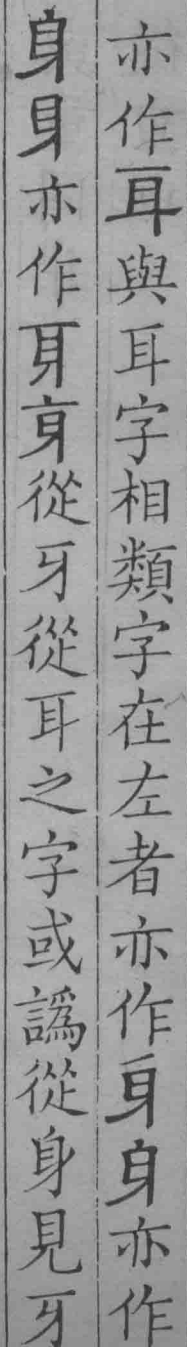 亦作耳與耳字相類字在左者亦作身身亦作
身亦作從牙從耳之字或譌從身見牙